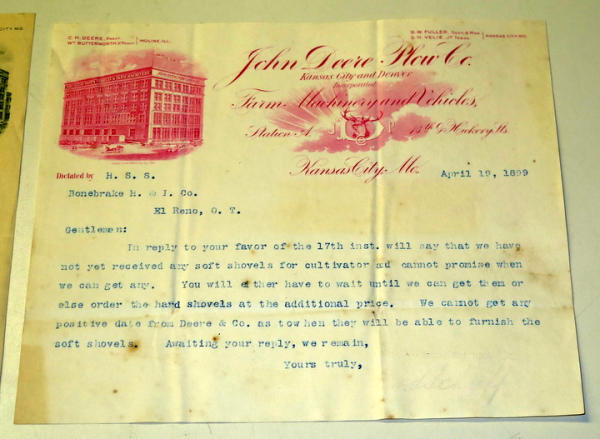 CITY MO.
C. H. DEERE, PREST.
WM. BUTTERWORTH, V. PREST.
MOLINE, ILL.
G. W. FULLER, SECY. & MGR.
S. H. VELIE, JR. TREAS.
KANSAS CITY, MO.
John Deere Plow Co.
Kansas City and Denver
Incorporated
Farm Machinery and Vehicles,
Station A.
13th & Hickory Sts.
Kansas City, Mo.
April 19, 1899
Dictated by H. S. S.
Bonebrake H. & I. Co.
El Reno, O. T.
Gentlemen:
In reply to your favor of the 17th inst. will say that we have
not yet received any soft shovels for cultivator ad cannot promise when
we can get any. You will either have to wait until we can get them or
else order the hard shovels at the additional price. We cannot get any
positive date from Deere & Co. as tow hen they will be able to furnish the
soft shovels. Awaiting your reply, we remain,
Yours truly,